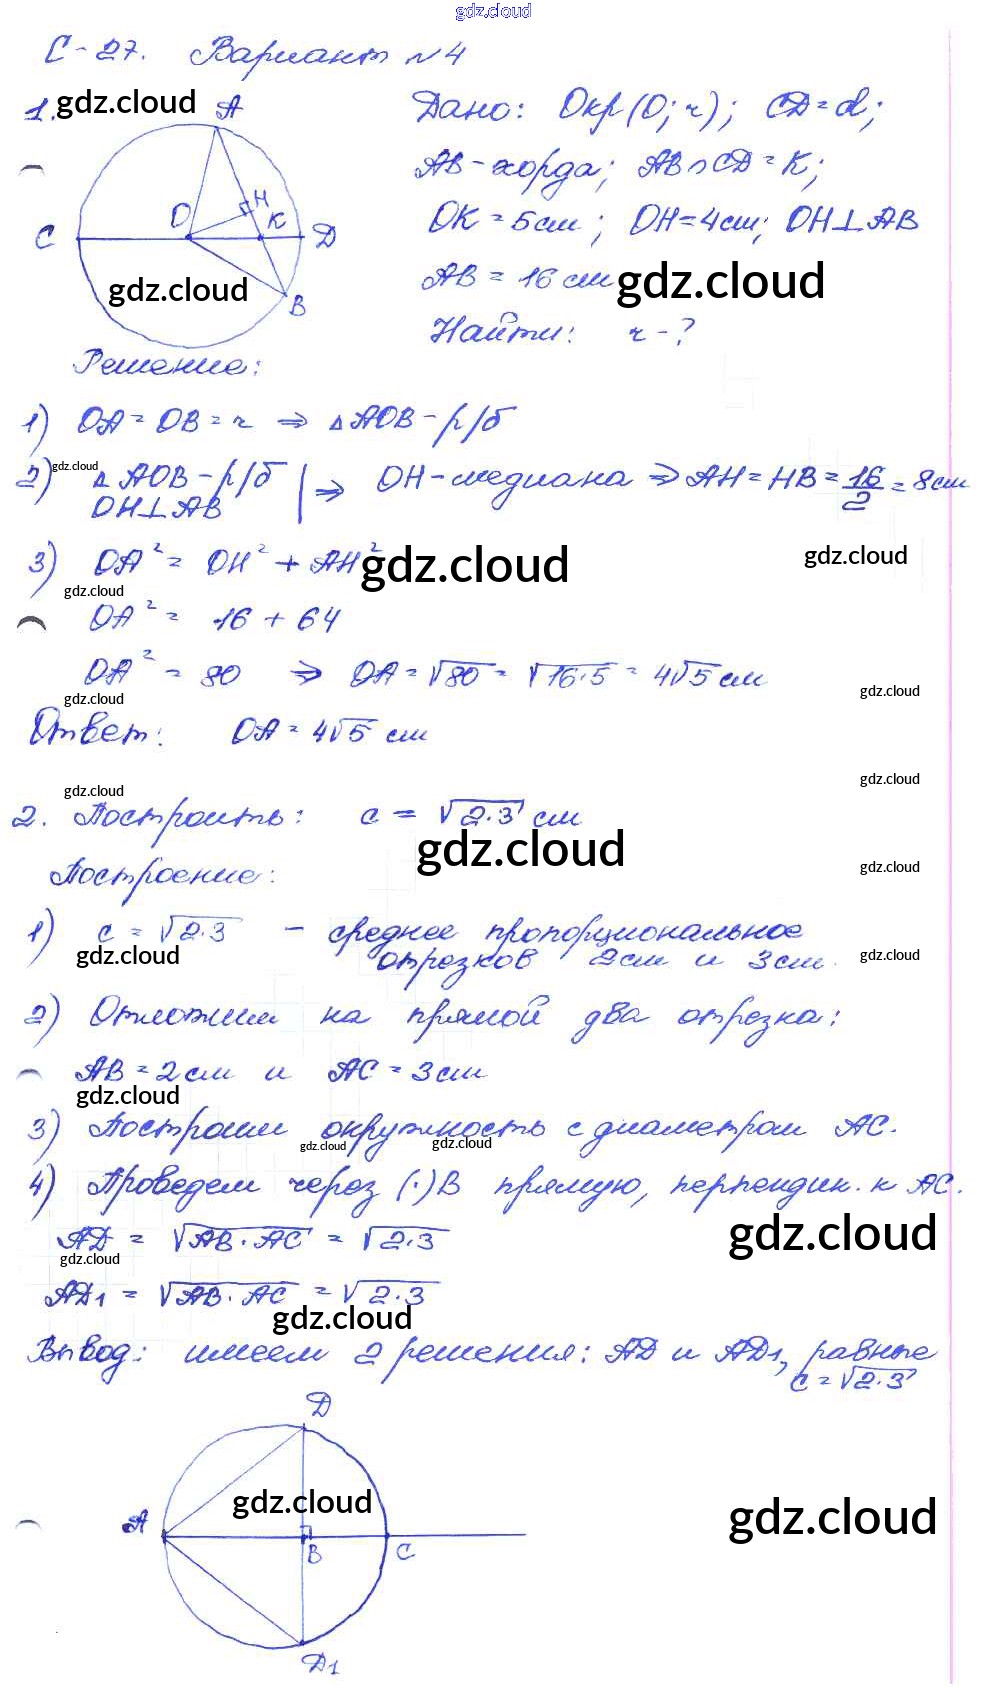 gdz.cloud
С-27. Вариант №4
1. gdz.cloud
A
H
O
K
C
D
B
gdz.cloud
Дано: Окр(O; r); CD = d;
AB - хорда; AB ∩ CD = K;
OK = 5 см; OH = 4 см; OH ⊥ AB
AB = 16 см
gdz.cloud
Найти: r - ?
Решение:
1) OA = OB = r ⇒ △AOB - р/б
2) gdz.cloud △ AOB - р/б | ⇒ OH - медиана ⇒ AH = HB = 16/2 = 8 см
OH ⊥ AB
3) OA² = OH² + AH²
gdz.cloud
gdz.cloud
gdz.cloud
OA² = 16 + 64
OA² = 80 ⇒ OA = √80 = √16·5 = 4√5 см
gdz.cloud
gdz.cloud
Ответ: OA = 4√5 см
gdz.cloud
gdz.cloud
2. Построить: c = √2·3 см
gdz.cloud
gdz.cloud
Построение:
1) c = √2·3 - среднее пропорциональное
отрезков 2 см и 3 см.
gdz.cloud
gdz.cloud
2) Отложим на прямой два отрезка:
AB = 2 см и AC = 3 см
gdz.cloud
3) Построим окружность с диаметром AC.
gdz.cloud
gdz.cloud
4) Проведем через (·) B прямую, перпендик. к AC.
gdz.cloud
AD = √AB·AC = √2·3
gdz.cloud
AD₁ = √AB·AC = √2·3
gdz.cloud
Вывод: имеем 2 решения: AD и AD₁, равные
c = √2·3
D
gdz.cloud
gdz.cloud
A
B
C
D₁